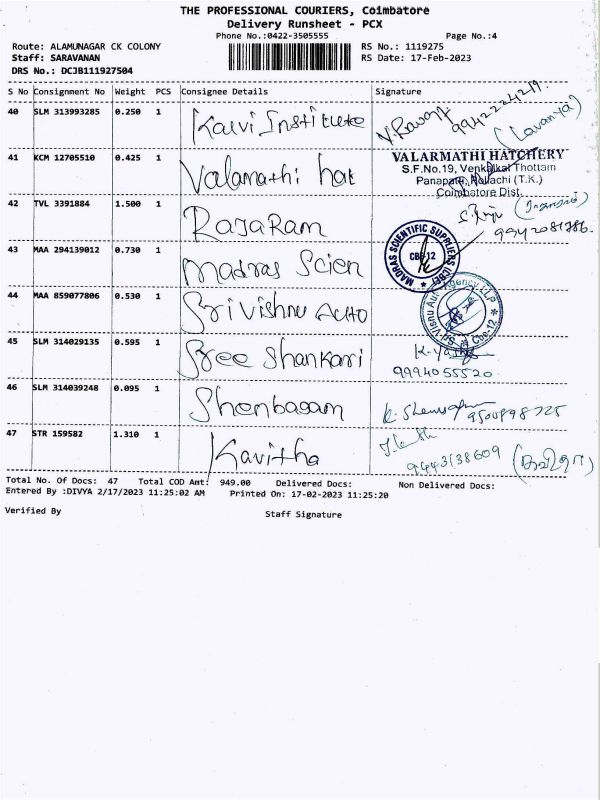 THE PROFESSIONAL COURIERS, Coimbatore
Delivery Runsheet - PCX
Phone No.:0422-3505555 Page No.:4
Route: ALAMUNAGAR CK COLONY RS No.: 1119275
Staff: SARAVANAN RS Date: 17-Feb-2023
DRS No.: DCJB111927504
S No Consignment No Weight PCS Consignee Details Signature
40 SLM 313993285 0.250 1 Kalvi Institute 9942224219 (Lavanya)
41 KCM 12705510 0.425 1 Valamathi hat
VALARMATHI HATCHERY
S.F.No.19, Venkalkal Thottam
Panapatti, Pollachi (T.K.)
Coimbatore Dist.
42 TVL 3391884 1.500 1 RAJARAM
43 MAA 294139012 0.730 1 Madras Scien
MADRAS SCIENTIFIC SUPPLIERS (CBE)
CBE-12
44 MAA 859077806 0.530 1 Sri Vishnu Auto
Cbe-12
45 SLM 314029135 0.595 1 Sree Shankari
9994055520
46 SLM 314039248 0.095 1 Shenbagam
47 STR 159582 1.310 1 Kavitha 9443138609 (கவிதா)
Total No. Of Docs: 47 Total COD Amt: 949.00 Delivered Docs: Non Delivered Docs:
Entered By :DIVYA 2/17/2023 11:25:02 AM Printed On: 17-02-2023 11:25:20
Verified By Staff Signature